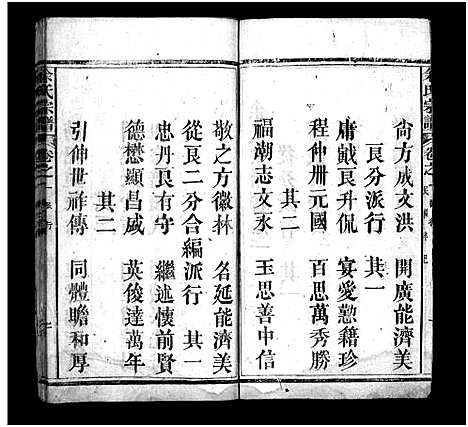 余氏宗譜 卷之一
尙方成文洪 開廣能濟美
良分派行 其一
庸戴良升侃 宴愛懃藉珍
程仲卅元國 百思萬秀勝
其二
福潮志文永 玉思善中信
敬之方徽林 名延能濟美
從良二分合編派行 其一
忠丹良有守 繼述懷前賢
德懋顯昌威 英俊達萬年
其二
引伸世祥傳 同體瞻和厚
余氏宗譜 卷之一